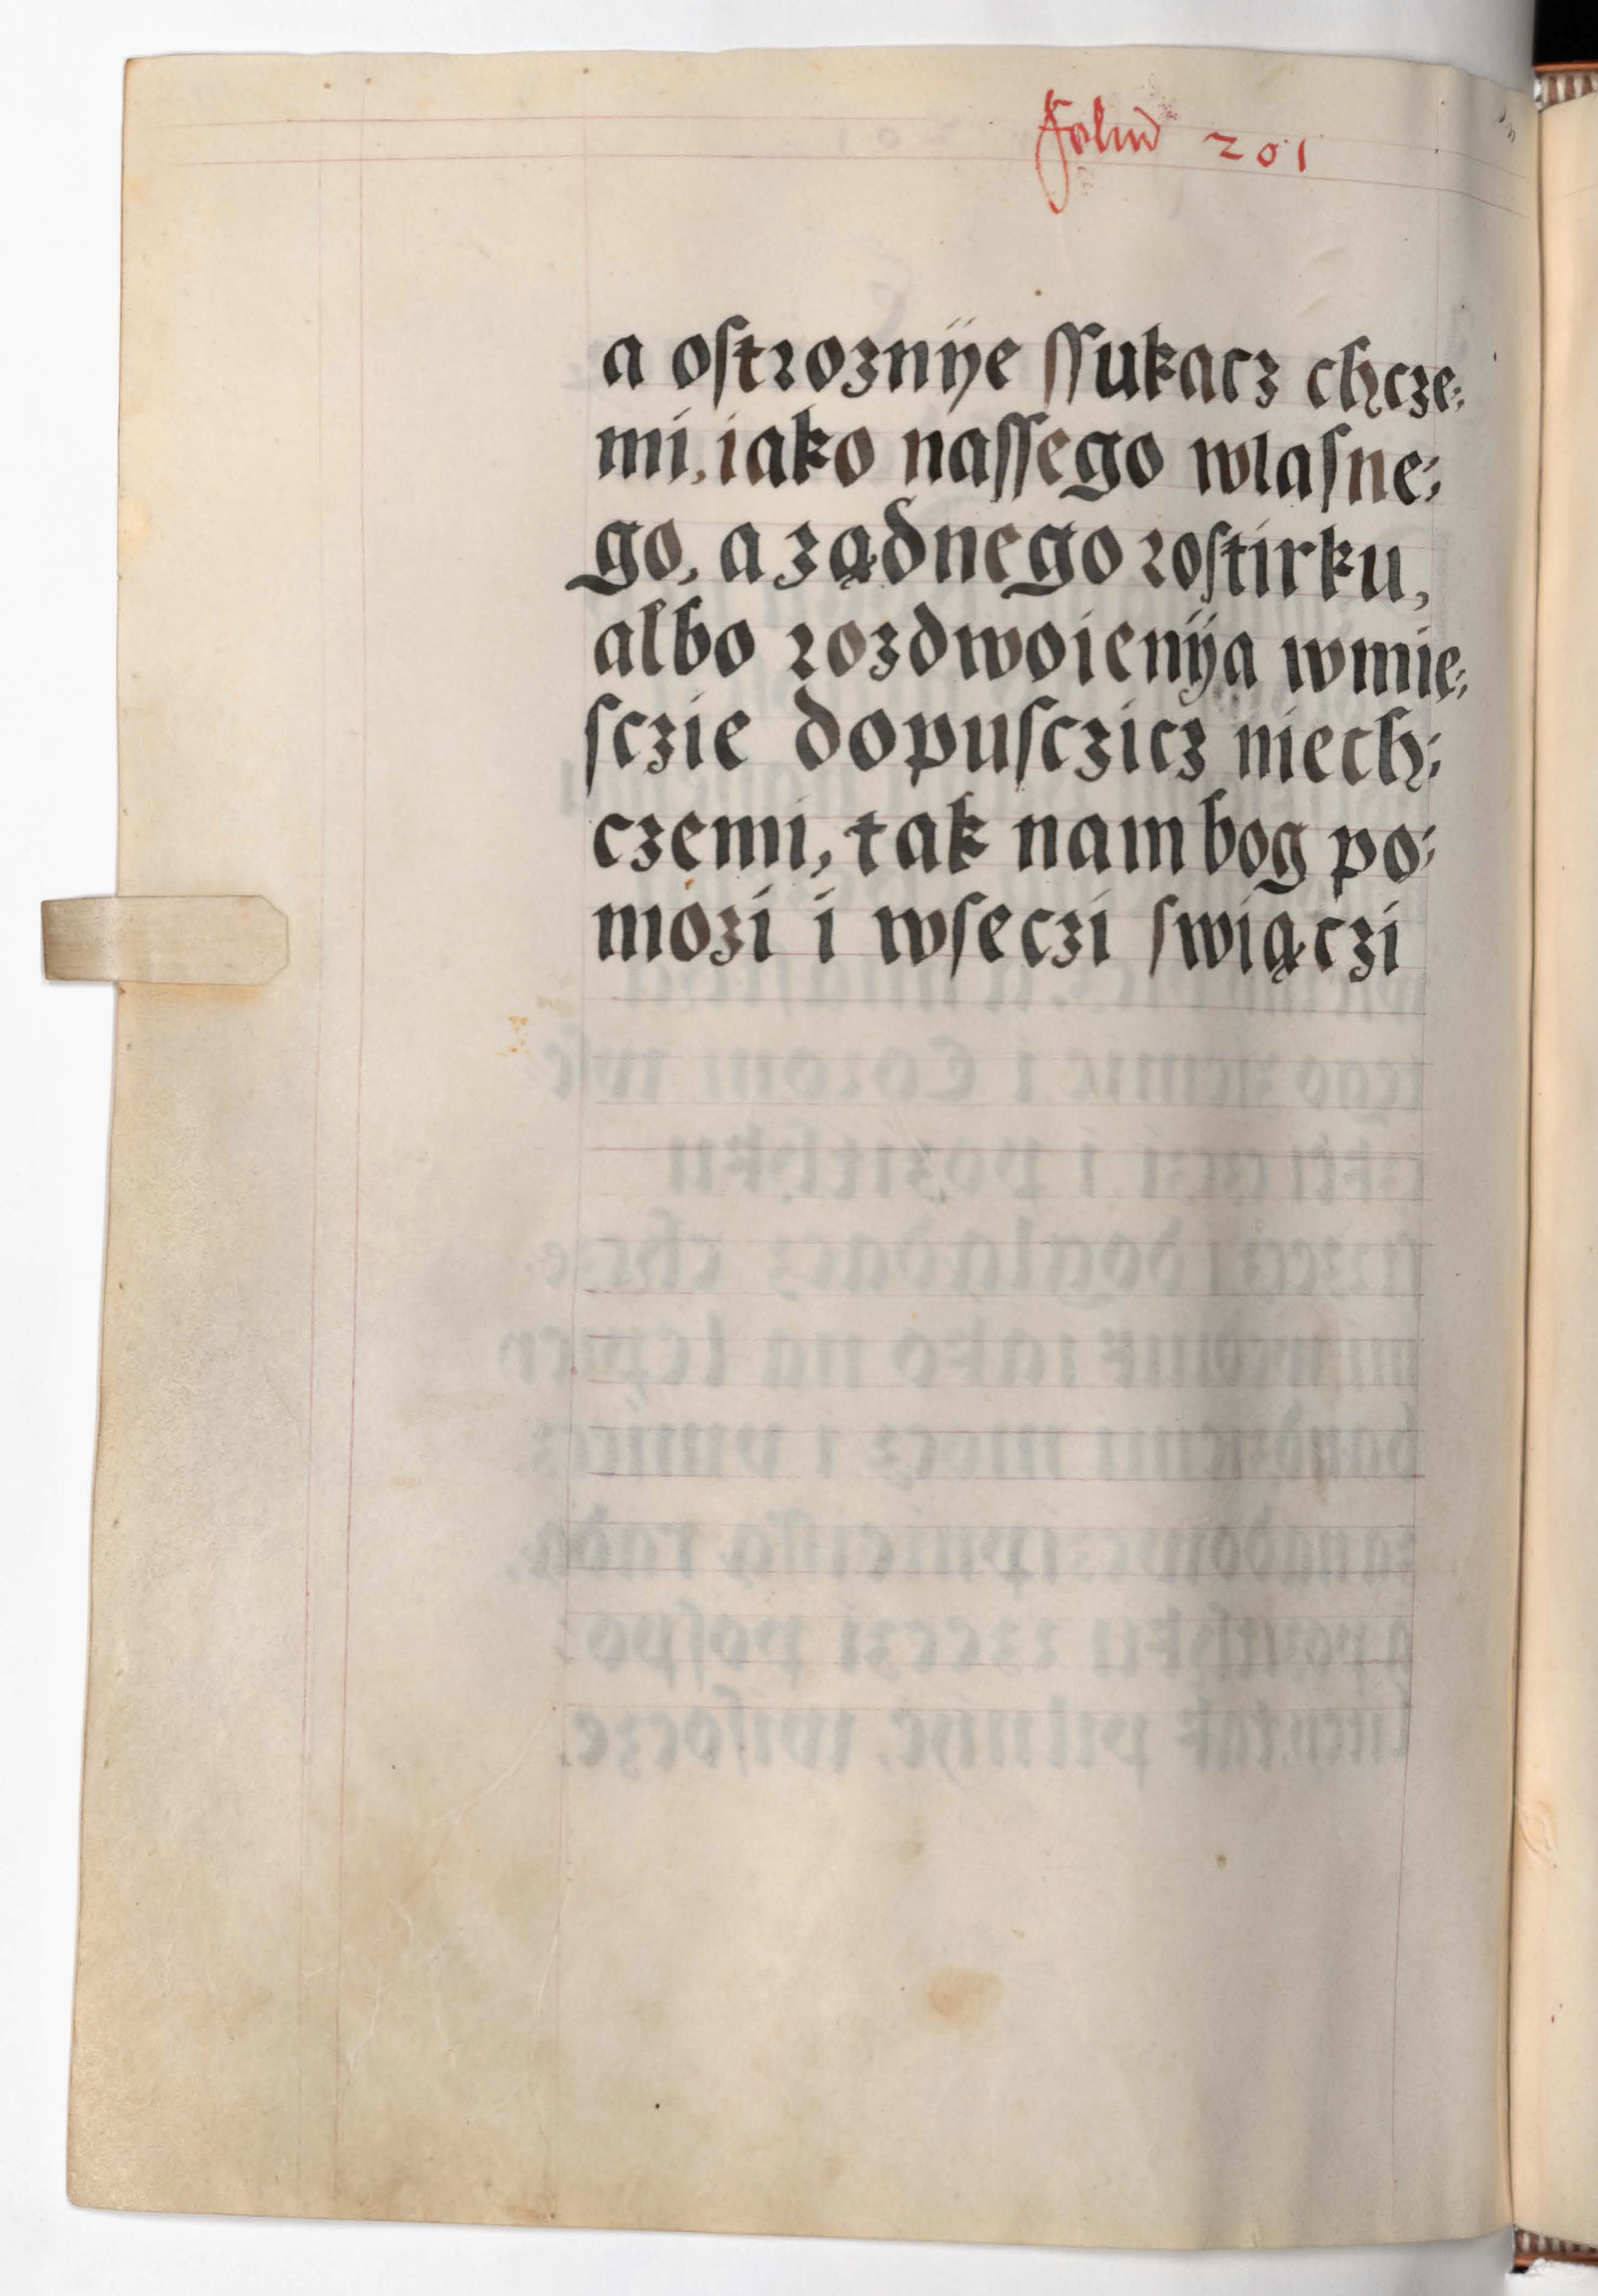 Folio 201
a ostroznÿe ssukacz chcze:
mi, iako nassego wlasne:
go, a ządnego rostirku,
albo rozdwoienÿa wmie:
sczie dopusczicz niech:
czemi, tak nam bog po:
mozi i wseczi swiączi